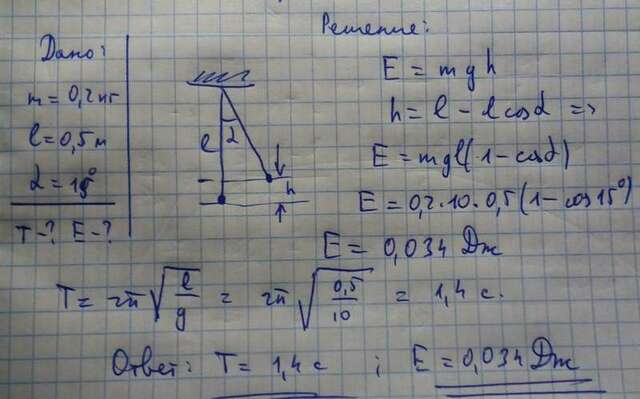 Дано:
m = 0,2 кг
l = 0,5 м
α = 15°
T - ? E - ?
Решение:
l
α
h
E = mgh
h = l - l cosα =>
E = mgl(1 - cosα)
E = 0,2·10·0,5(1 - cos15°)
E = 0,034 Дж
T = 2π√(l/g) = 2π√(0,5/10) = 1,4 с.
Ответ: T = 1,4 с ; E = 0,034 Дж